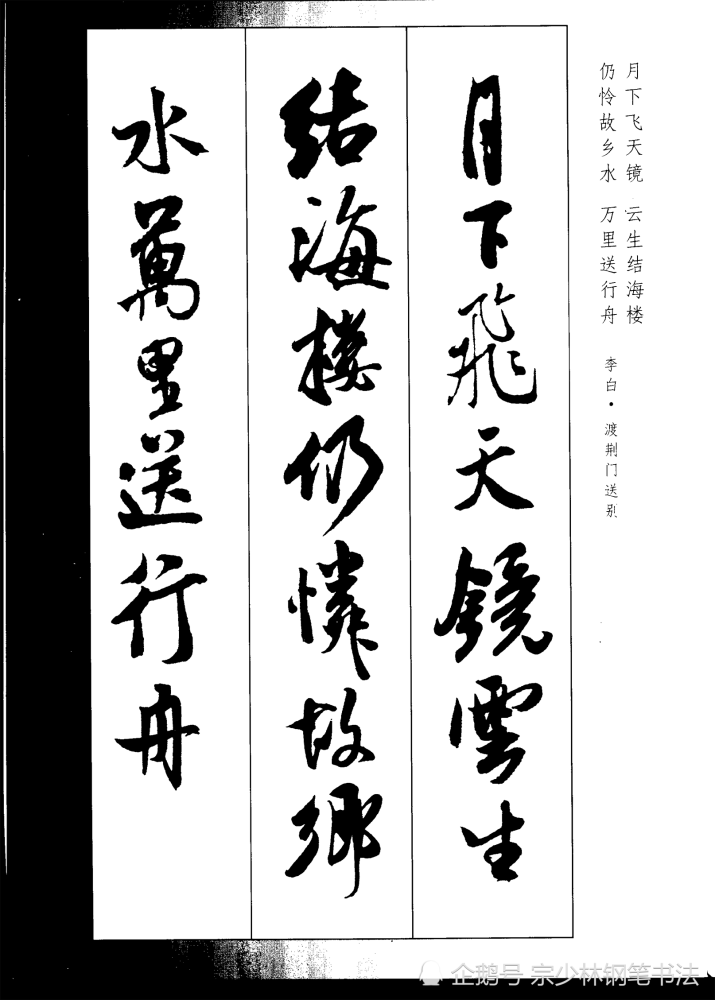 月下飞天镜 云生结海楼
仍怜故乡水 万里送行舟
李白·渡荆门送别
月下飛天鏡雲生
結海樓仍憐故鄉
水萬里送行舟
企鹅号 宗少林钢笔书法